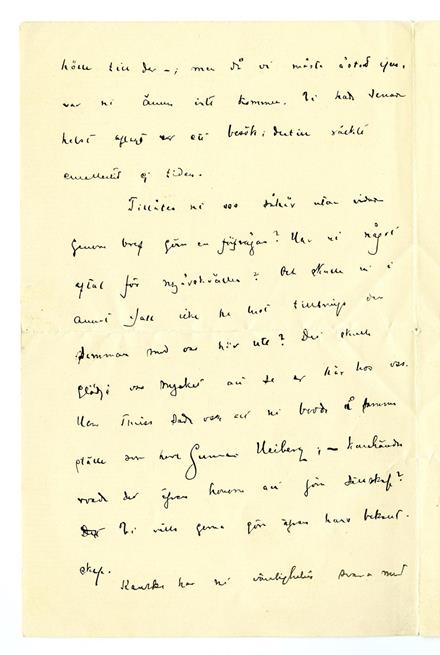 hölle till der –; men då vi måste åstad igen,
var ni ännu inte kommen. Vi hade senare
helst aflagt er ett besök; dertill räckte
emellertid ej tiden.
Tillåter ni oss såhär utan vidare
genom bref göra en förfrågan? Har ni något
aftal för nyårskvällen? Och skulle ni i
annat fall icke ha lust tillbringa den
samman med oss här ute? Det skulle
glädja oss mycket att se er här hos oss.
Herr sade oss att ni bodde på samma
ställe som herr Gunnar Heiberg; – kanhända
roade det äfven honom att göra sällskap?
Vi ville gerna göra äfven hans bekant-
skap.
Kanske har ni vänligheten svara med